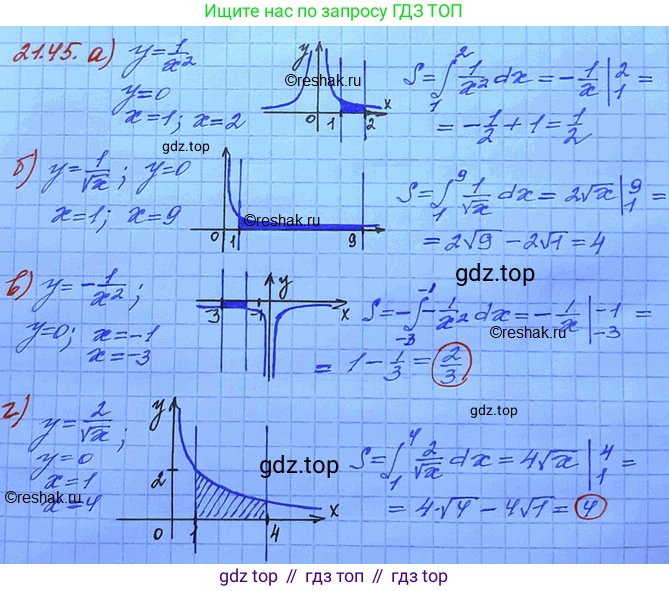 Ищите нас по запросу ГДЗ ТОП
21.45. а) y = 1/x²
y=0
x=1; x=2
y
x
0 1 2
©reshak.ru
S = ∫₁² 1/x² dx = -1/x |₁² =
= -1/2 + 1 = 1/2
gdz.top
б) y = 1/√x; y=0
x=1; x=9
0 1 9
©reshak.ru
S = ∫₁⁹ 1/√x dx = 2√x |₁⁹ =
= 2√9 - 2√1 = 4
gdz.top
в) y = -1/x²;
y=0; x=-1
x=-3
y
-3 -1 x
S = -∫₋₃⁻¹ -1/x² dx = -1/x |₋₃⁻¹ =
= 1 - 1/3 = 2/3
gdz.top
г) y = 2/√x;
y=0
x=1
x=4
©reshak.ru
y
2
0 1 4 x
gdz.top
S = ∫₁⁴ 2/√x dx = 4√x |₁⁴ =
= 4·√4 - 4√1 = 4
gdz.top // гдз топ // gdz.top